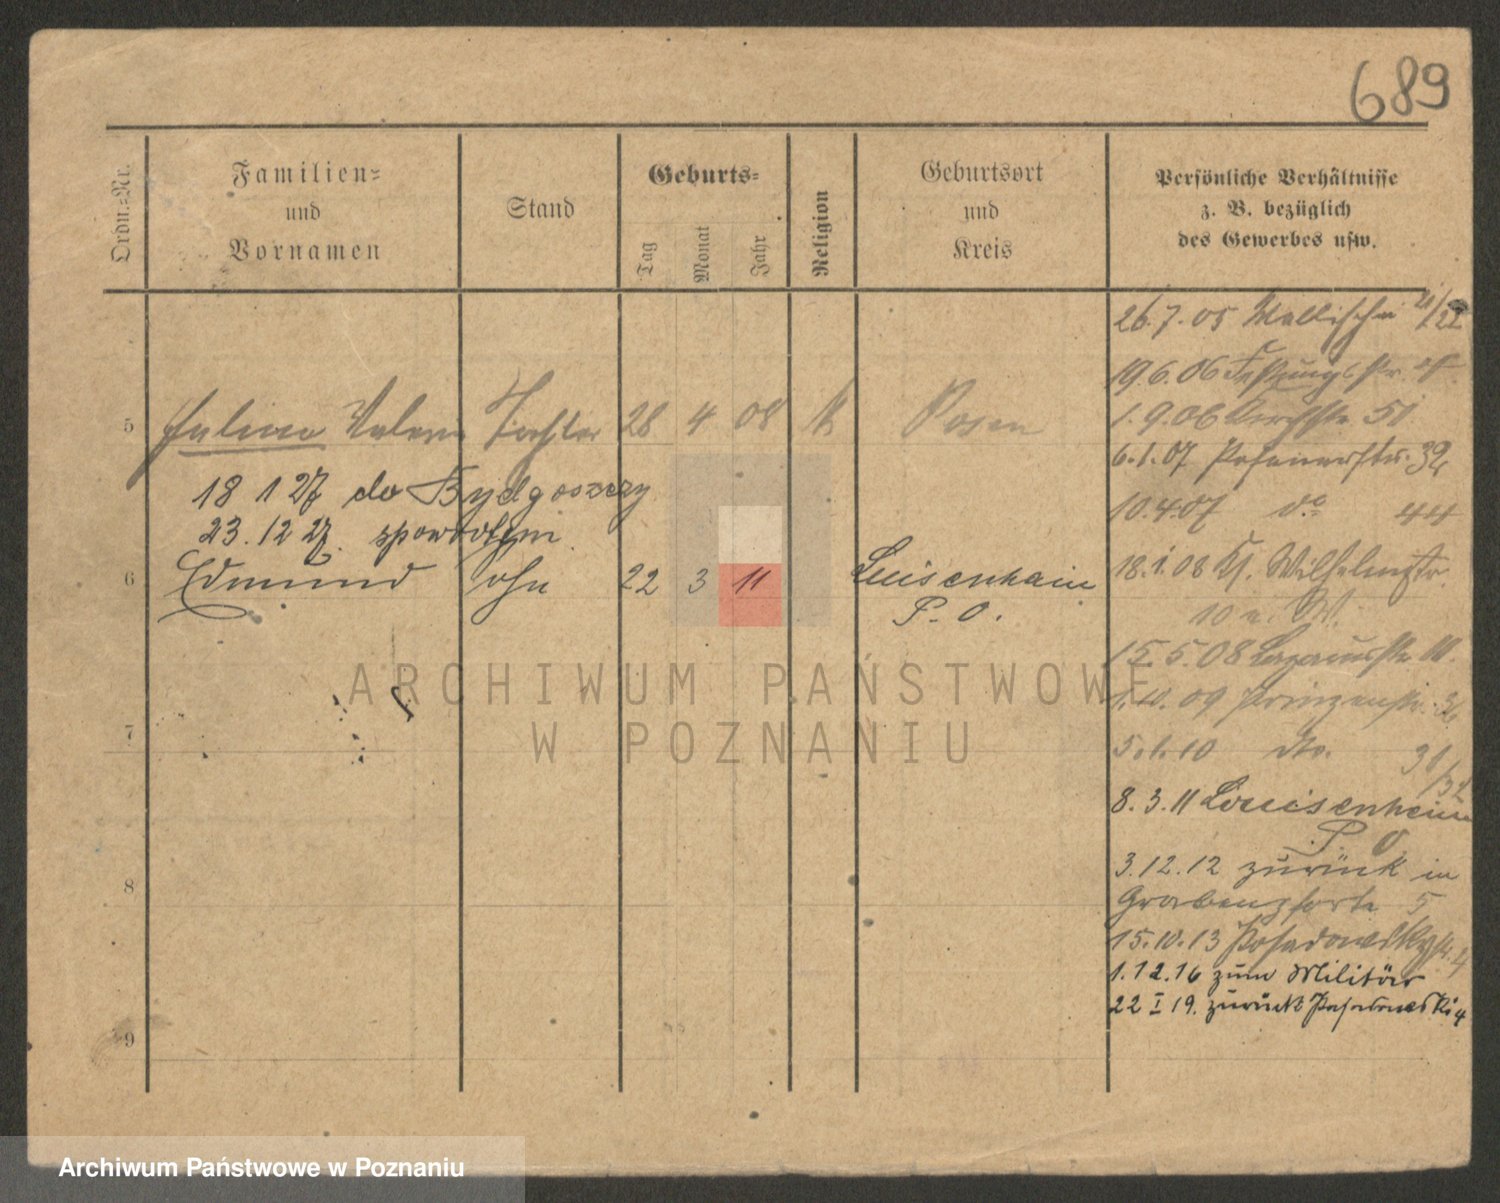 689
Ordn.-Nr.
Familien-
und
Vornamen
Stand
Geburts-
Tag
Monat
Jahr
Religion
Geburtsort
und
Kreis
Persönliche Verhältnisse
z. B. bezüglich
des Gewerbes usw.
26.7.05 Wallischei 21/22
19.6.06 Festungsstr.
1.9.06 Kirchstr. 51
5 Halina Tochter 28 4 08 K Posen
6.1.07 Posenerstr. 39
18 1 27 do Bydgoszczy
10.4.07 do 44
23.12 27. spowrotem
6 Edmund Sohn 22 3 11 Luisenhain
P. O.
18.1.08 Kl. Wilhelmstr.
10
15.5.08 Lazarusstr.
1.10.09 Prinzenstr. 36
ARCHIWUM PAŃSTWOWE
W POZNANIU
7
5.1.10 dto. 31/32
8.3.11 Louisenhein
P. O
3.12.12 zurück in
8
Grabenpforte 5
15.10.13 Posadowskystr. 4
1.12.16 zum Militär
22 I 19. zurück Posadowski 4
9
Archiwum Państwowe w Poznaniu